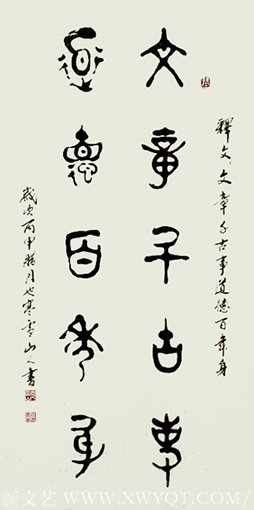 釋文、文章千古事道德百年身
文章千古事
道德百年身
歲次丙申臘月寒雪山書
新文艺 WWW.XWYQT.COM